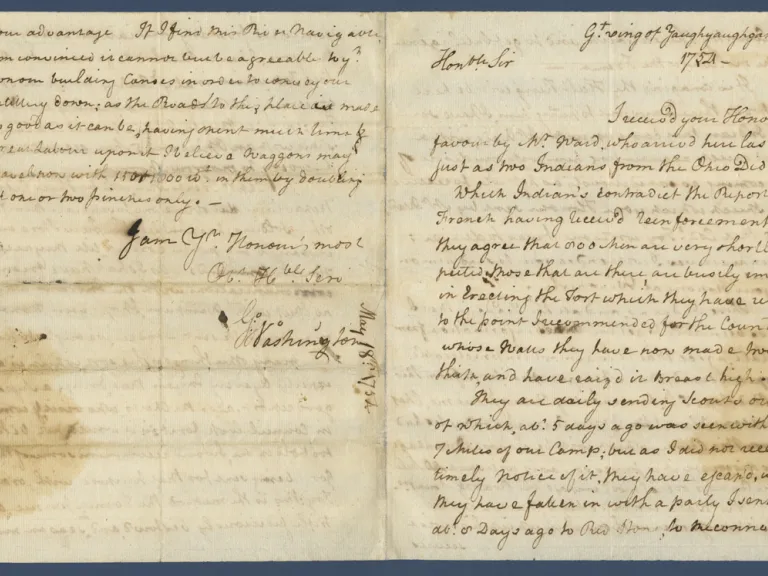 our advantage If I find this River Navigable
am convinced it cannot but be agreeable to yr.
Honour building Canoes in order to convey our
Artillery down; as the Roads to this place are made
as good as it can be, having spent much time &
great labour upon it I believe Waggons may
travel now with 1500 wt. in them by doubling
at one or two pinches only. —
I am Yr. Honour's most
Obt. Hble Servt
Go. Washington
May 18: 1754
Gt. Crossing of Yaughyaughga
1754 —
Honble Sir
I receiv'd your Honou
favour by Mr. Ward, who arriv'd here las
just as two Indians from the Ohio Did
Which Indian's contradict the Report
French having receiv'd reinforcement
they agree that 800 Men are very shortl
pected those that are there are busily im
in Erecting the Fort which they have
to the point I recommended for the Coun
whose Walls they have now made two
thick, and have raizd it Breast high.
They are daily sending Scouts ou
of which, abt. 5 days ago was seen with
7 Miles of our Camp; but as I did not rece
timely Notice of it, they have escap'd,
they have fallen in with a party I sen
abt. 8 Days ago to Red Stone, to reconno